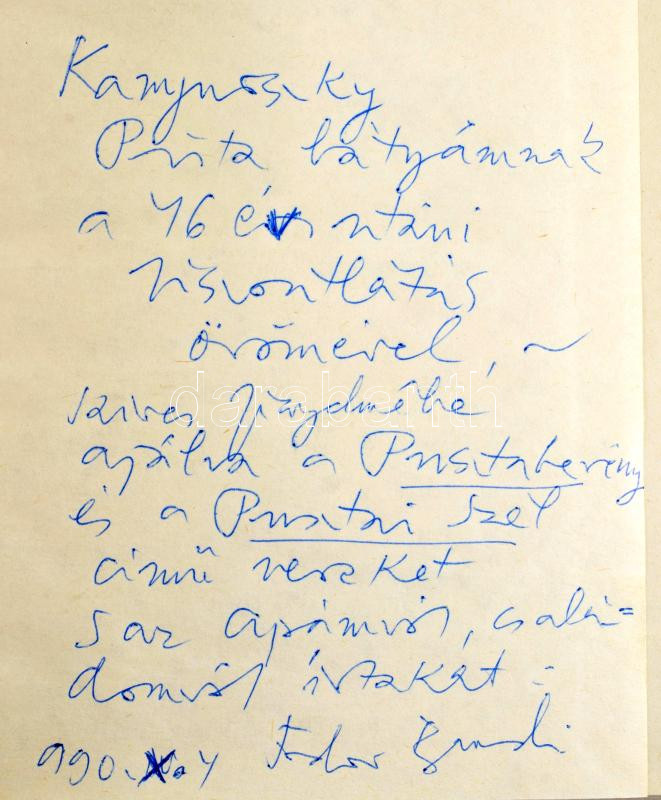 Kamjnoszky
Pista bátyámnak
a 46 év utáni
viszontlátás
örömével, ~
szíves figyelmébe
ajálva a Pusztaberény
és a Pusztai szél
című verseket
s az apámról, csalá=
domról írtakat =
990. X. 4 Fodor András
darabanth